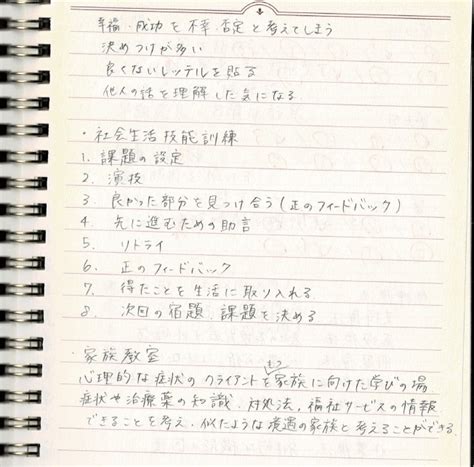 幸福・成功を不幸・否定と考えてしまう
決めつけが多い
良くないレッテルを貼る
他人の話を理解した気になる
・社会生活技能訓練
1. 課題の設定
2. 演技
3. 良かった部分を見つけ合う(正のフィードバック)
4. 先に進むための助言
5. リトライ
6. 正のフィードバック
7. 得たことを生活に取り入れる
8. 次回の宿題、課題を決める
・家族教室
心理的な症状のクライアントを家族に向けた学びの場
もつ
症状や治療薬の知識、対処法、福祉サービスの情報
できることを考え、似たような境遇の家族と考えることができる